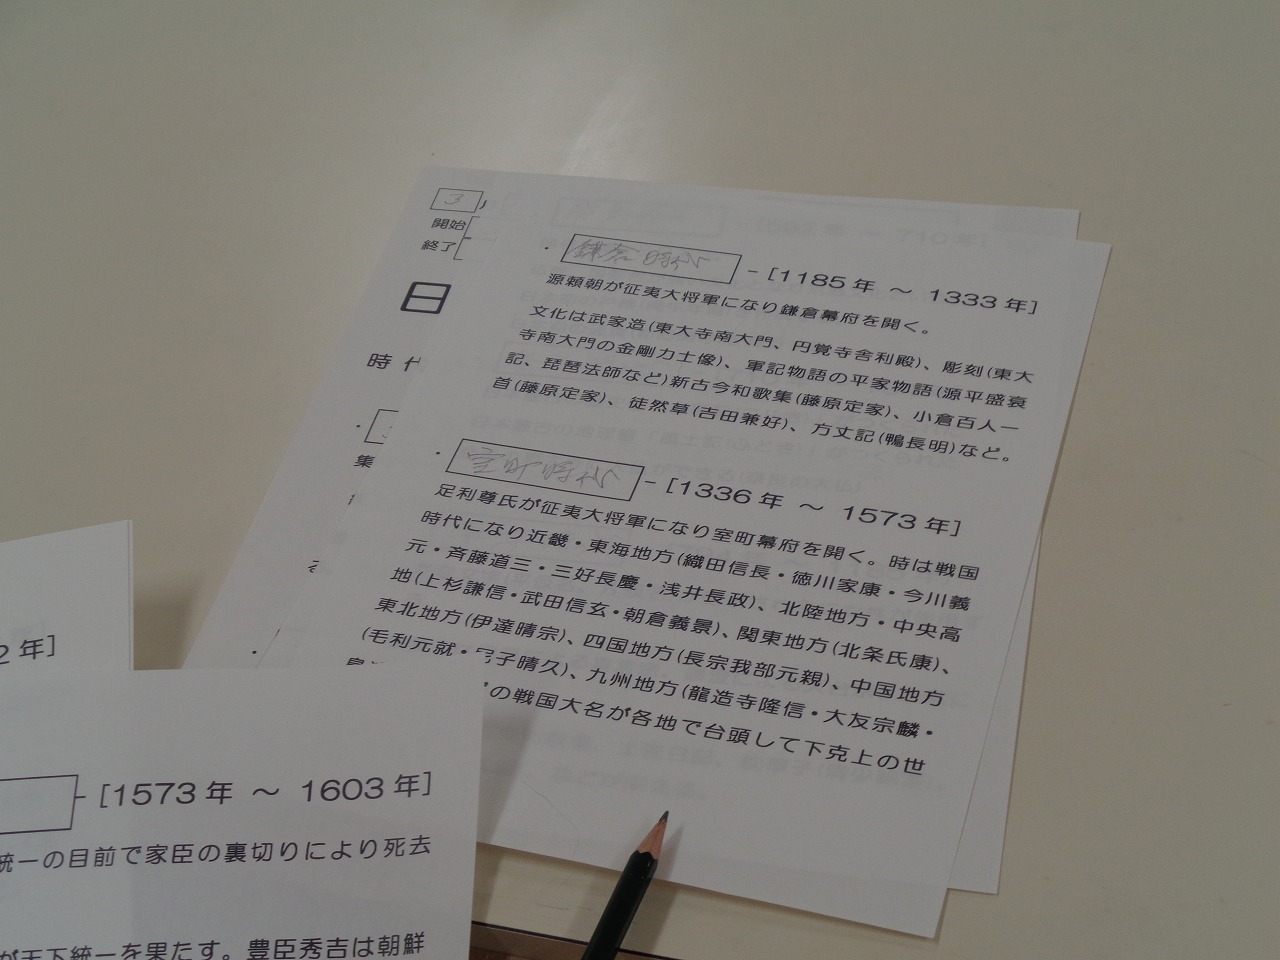 3
開始
終了
日
時 代
集
鎌倉時代 - [1185年 ～ 1333年]
源頼朝が征夷大将軍になり鎌倉幕府を開く。
文化は武家造(東大寺南大門、円覚寺舎利殿)、彫刻(東大
寺南大門の金剛力士像)、軍記物語の平家物語(源平盛衰
記、琵琶法師など)新古今和歌集(藤原定家)、小倉百人一
首(藤原定家)、徒然草(吉田兼好)、方丈記(鴨長明)など。
室町時代 - [1336年 ～ 1573年]
足利尊氏が征夷大将軍になり室町幕府を開く。時は戦国
時代になり近畿・東海地方(織田信長・徳川家康・今川義
元・斉藤道三・三好長慶・浅井長政)、北陸地方・中央高
地(上杉謙信・武田信玄・朝倉義景)、関東地方(北条氏康)、
東北地方(伊達晴宗)、四国地方(長宗我部元親)、中国地方
(毛利元就・尼子晴久)、九州地方(龍造寺隆信・大友宗麟・
の戦国大名が各地で台頭して下克上の世
2年]
- [1573年 ～ 1603年]
統一の目前で家臣の裏切りにより死去
が天下統一を果たす。豊臣秀吉は朝鮮